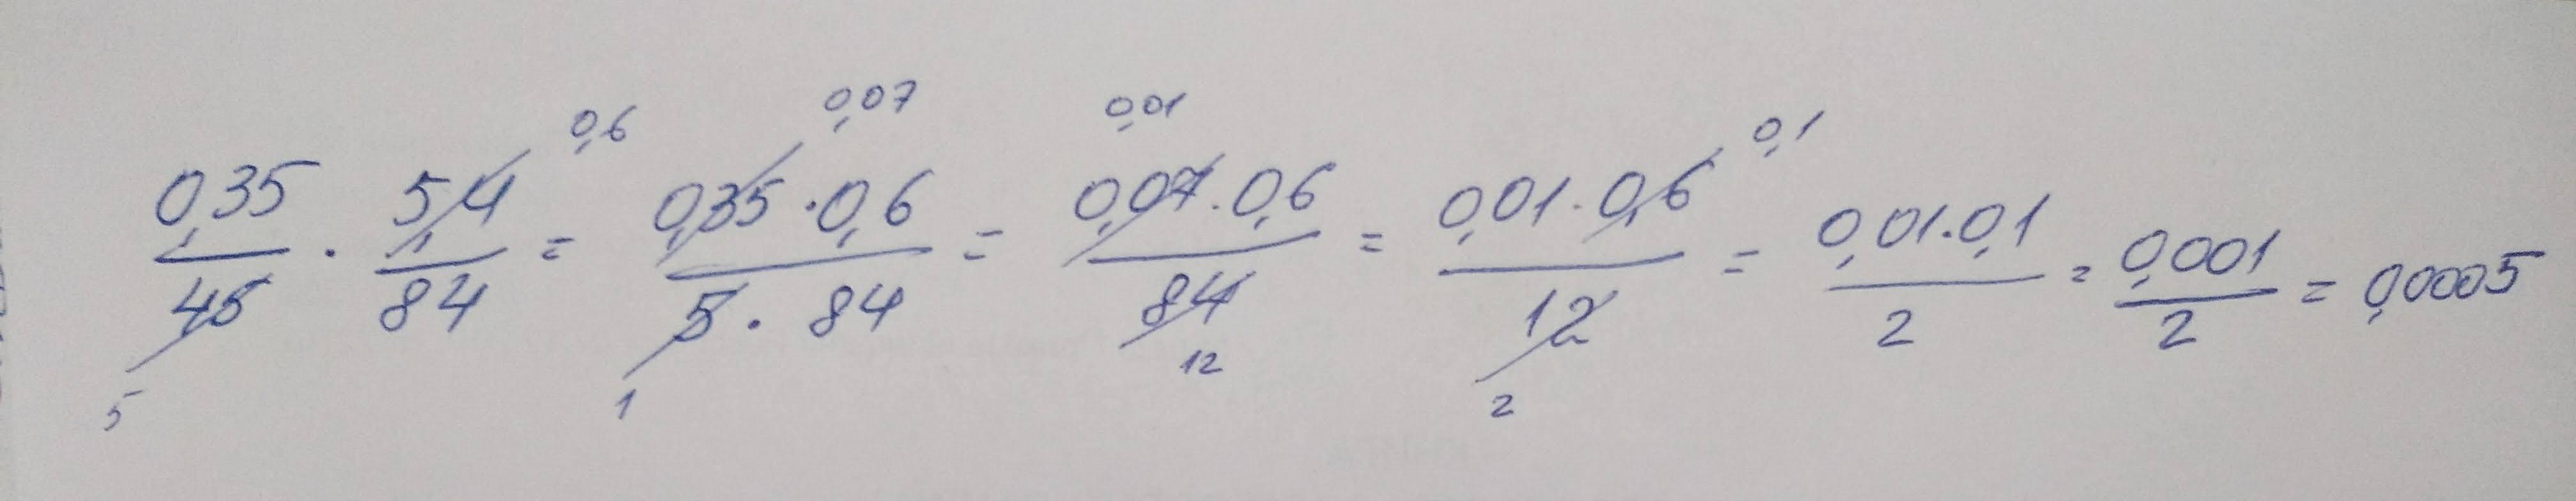 0,35/45 · 5,4/84 = 0,35 · 0,6/5 · 84 = 0,07 · 0,6/84 = 0,01 · 0,6/12 = 0,01 · 0,1/2 = 0,001/2 = 0,0005
0,6 0,07 0,01 0,1
5 1 12 2